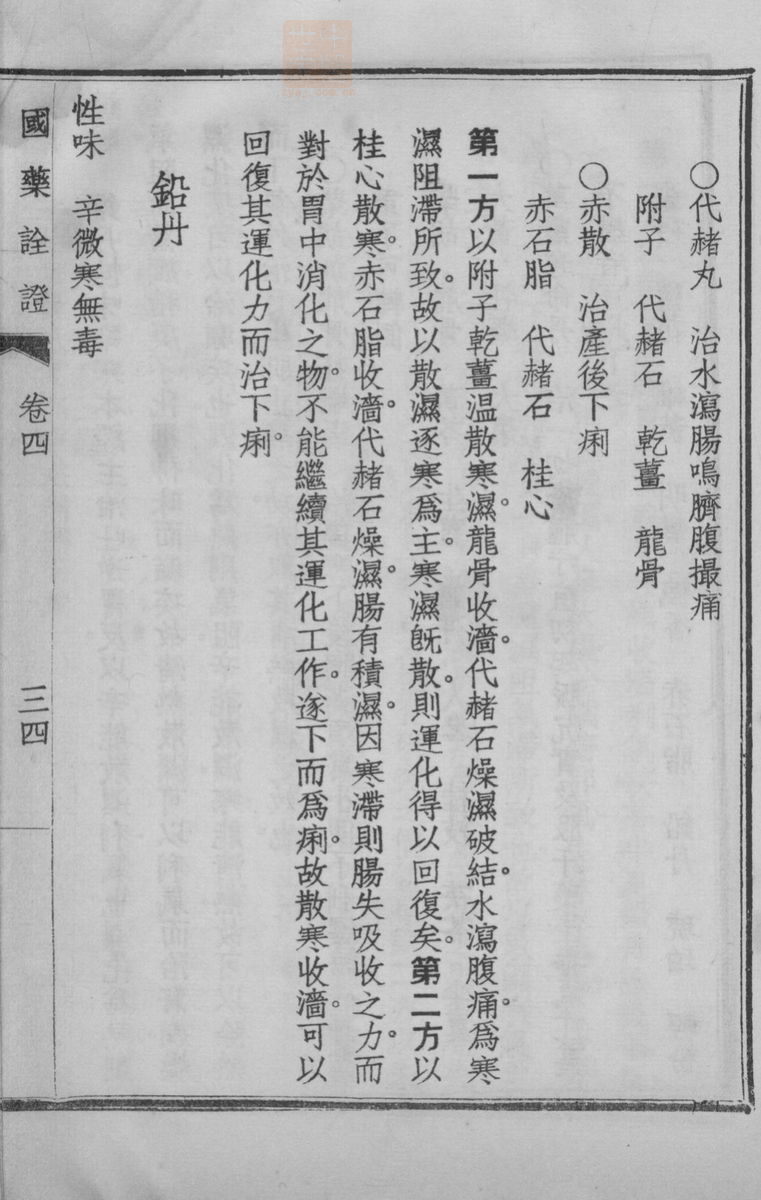 ○代赭丸　治水瀉腸鳴臍腹撮痛
附子　代赭石　乾薑　龍骨
○赤散　治產後下痢
赤石脂　代赭石　桂心
第一方以附子乾薑温散寒濕。龍骨收濇。代赭石燥濕破結。水瀉腹痛。爲寒
濕阻滯所致。故以散濕逐寒爲主。寒濕旣散。則運化得以回復矣。第二方以
桂心散寒。赤石脂收濇。代赭石燥濕。腸有積濕。因寒滯則腸失吸收之力。而
對於胃中消化之物。不能繼續其運化工作。遂下而爲痢。故散寒收濇。可以
回復其運化力而治下痢。
鉛丹
性味　辛微寒無毒
國藥詮證　卷四　三四